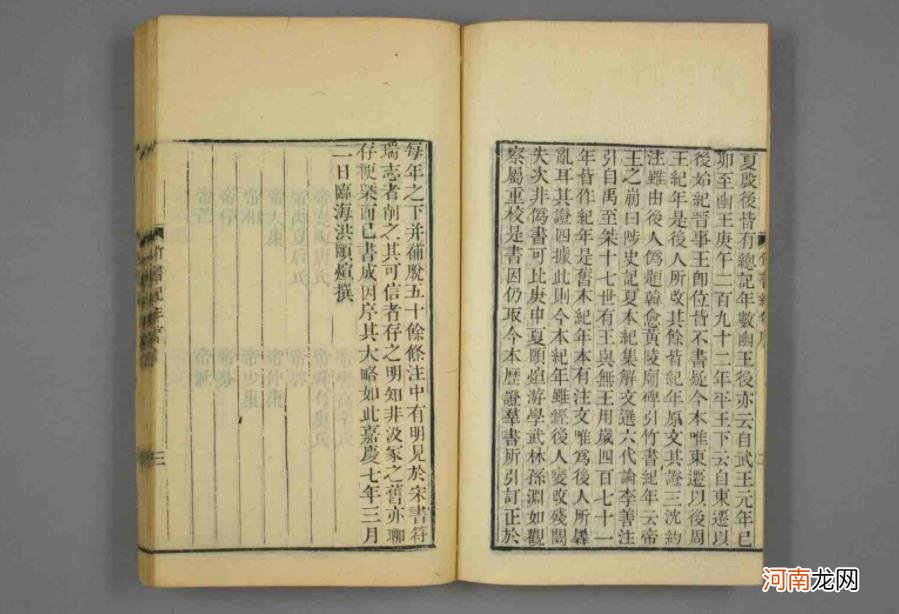 夏殷後皆有總記年數幽王後亦云自武王元年己
卯至幽王庚午二百九十二年平王下云自東遷以
後始紀晉事王卽位皆不書疑今本唯東遷以後周
王紀年是後人所改其餘皆紀年原文其證三沈約
注雖由後人僞題韓愈黃陵廟碑引竹書紀年云帝
王之崩曰陟史記夏本紀集解文選六代論李善注
引自禹至桀十七世有王與無王用歲四百七十一
年皆作紀年是舊本紀年本有注文唯爲後人所羼
亂耳其證四據此則今本紀年雖經後人變改殘闕
失次非僞書可比庚申夏頤煊游學武林孫淵如觀
察屬重校是書因仍取今本歷證羣書所引訂正於
每年之下并補脫五十餘條注中有明見於宋書符
瑞志者削之其可信者存之明知非汲冢之舊亦聊
存梗槩而已書成因序其大略如此嘉慶七年三月
二日臨海洪頤煊撰
竹書紀年
三
河南龙网